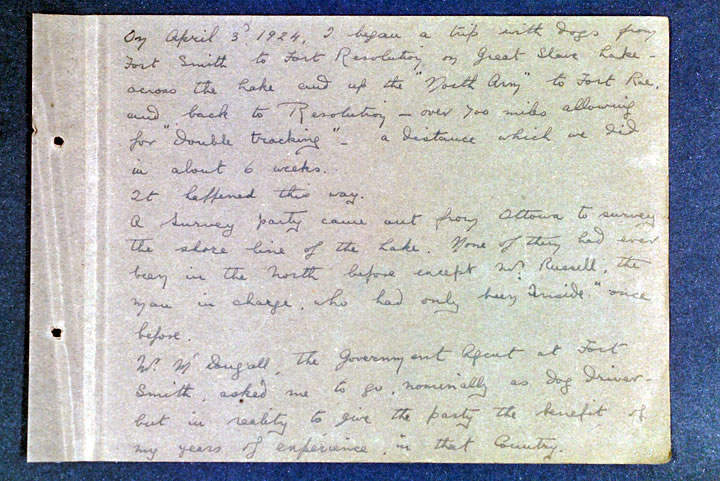 On April 3d 1924, I began a trip with dogs from
Fort Smith to Fort Resolution, on Great Slave Lake -
across the Lake and up the "North Arm" to Fort Rae,
and back to Resolution - over 700 miles allowing
for "Double tracking" - a distance which we did
in about 6 weeks.
It happened this way.
A Survey party came out from Ottawa to survey
the shore line of the Lake. None of them had ever
been in the North before except Mr. Russell, the
man in charge, who had only been Inside" once
before.
Mr. McDougall, the Government Agent at Fort
Smith, asked me to go, nominally as Dog Driver -
but in reality to give the party the benefit of
my years of experience, in that Country.